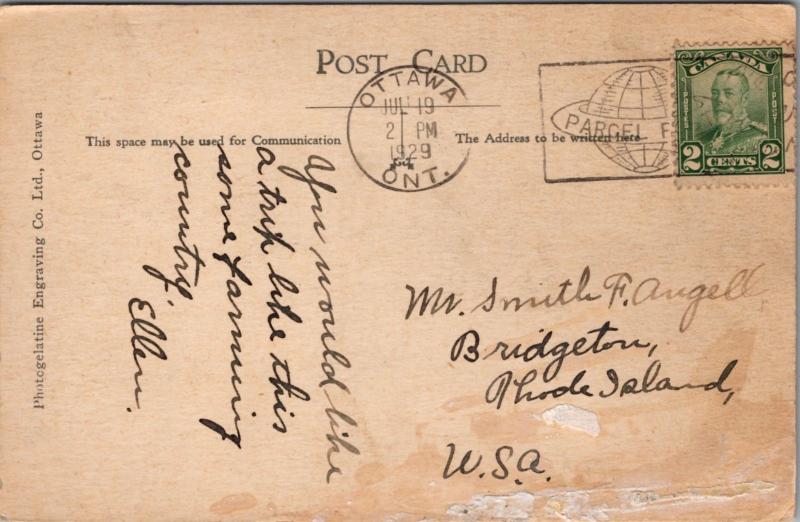 POST CARD
OTTAWA
JUL 19
2 PM
1929
ONT.
PARCEL
CANADA
POSTES POST
2 CENTS 2
This space may be used for Communication
The Address to be written here
Photogelatine Engraving Co. Ltd., Ottawa
You would like
a trip like this
some farming
country.
Ellen.
Mr. Smith F. Angell
Bridgeton,
Rhode Island,
U.S.A.